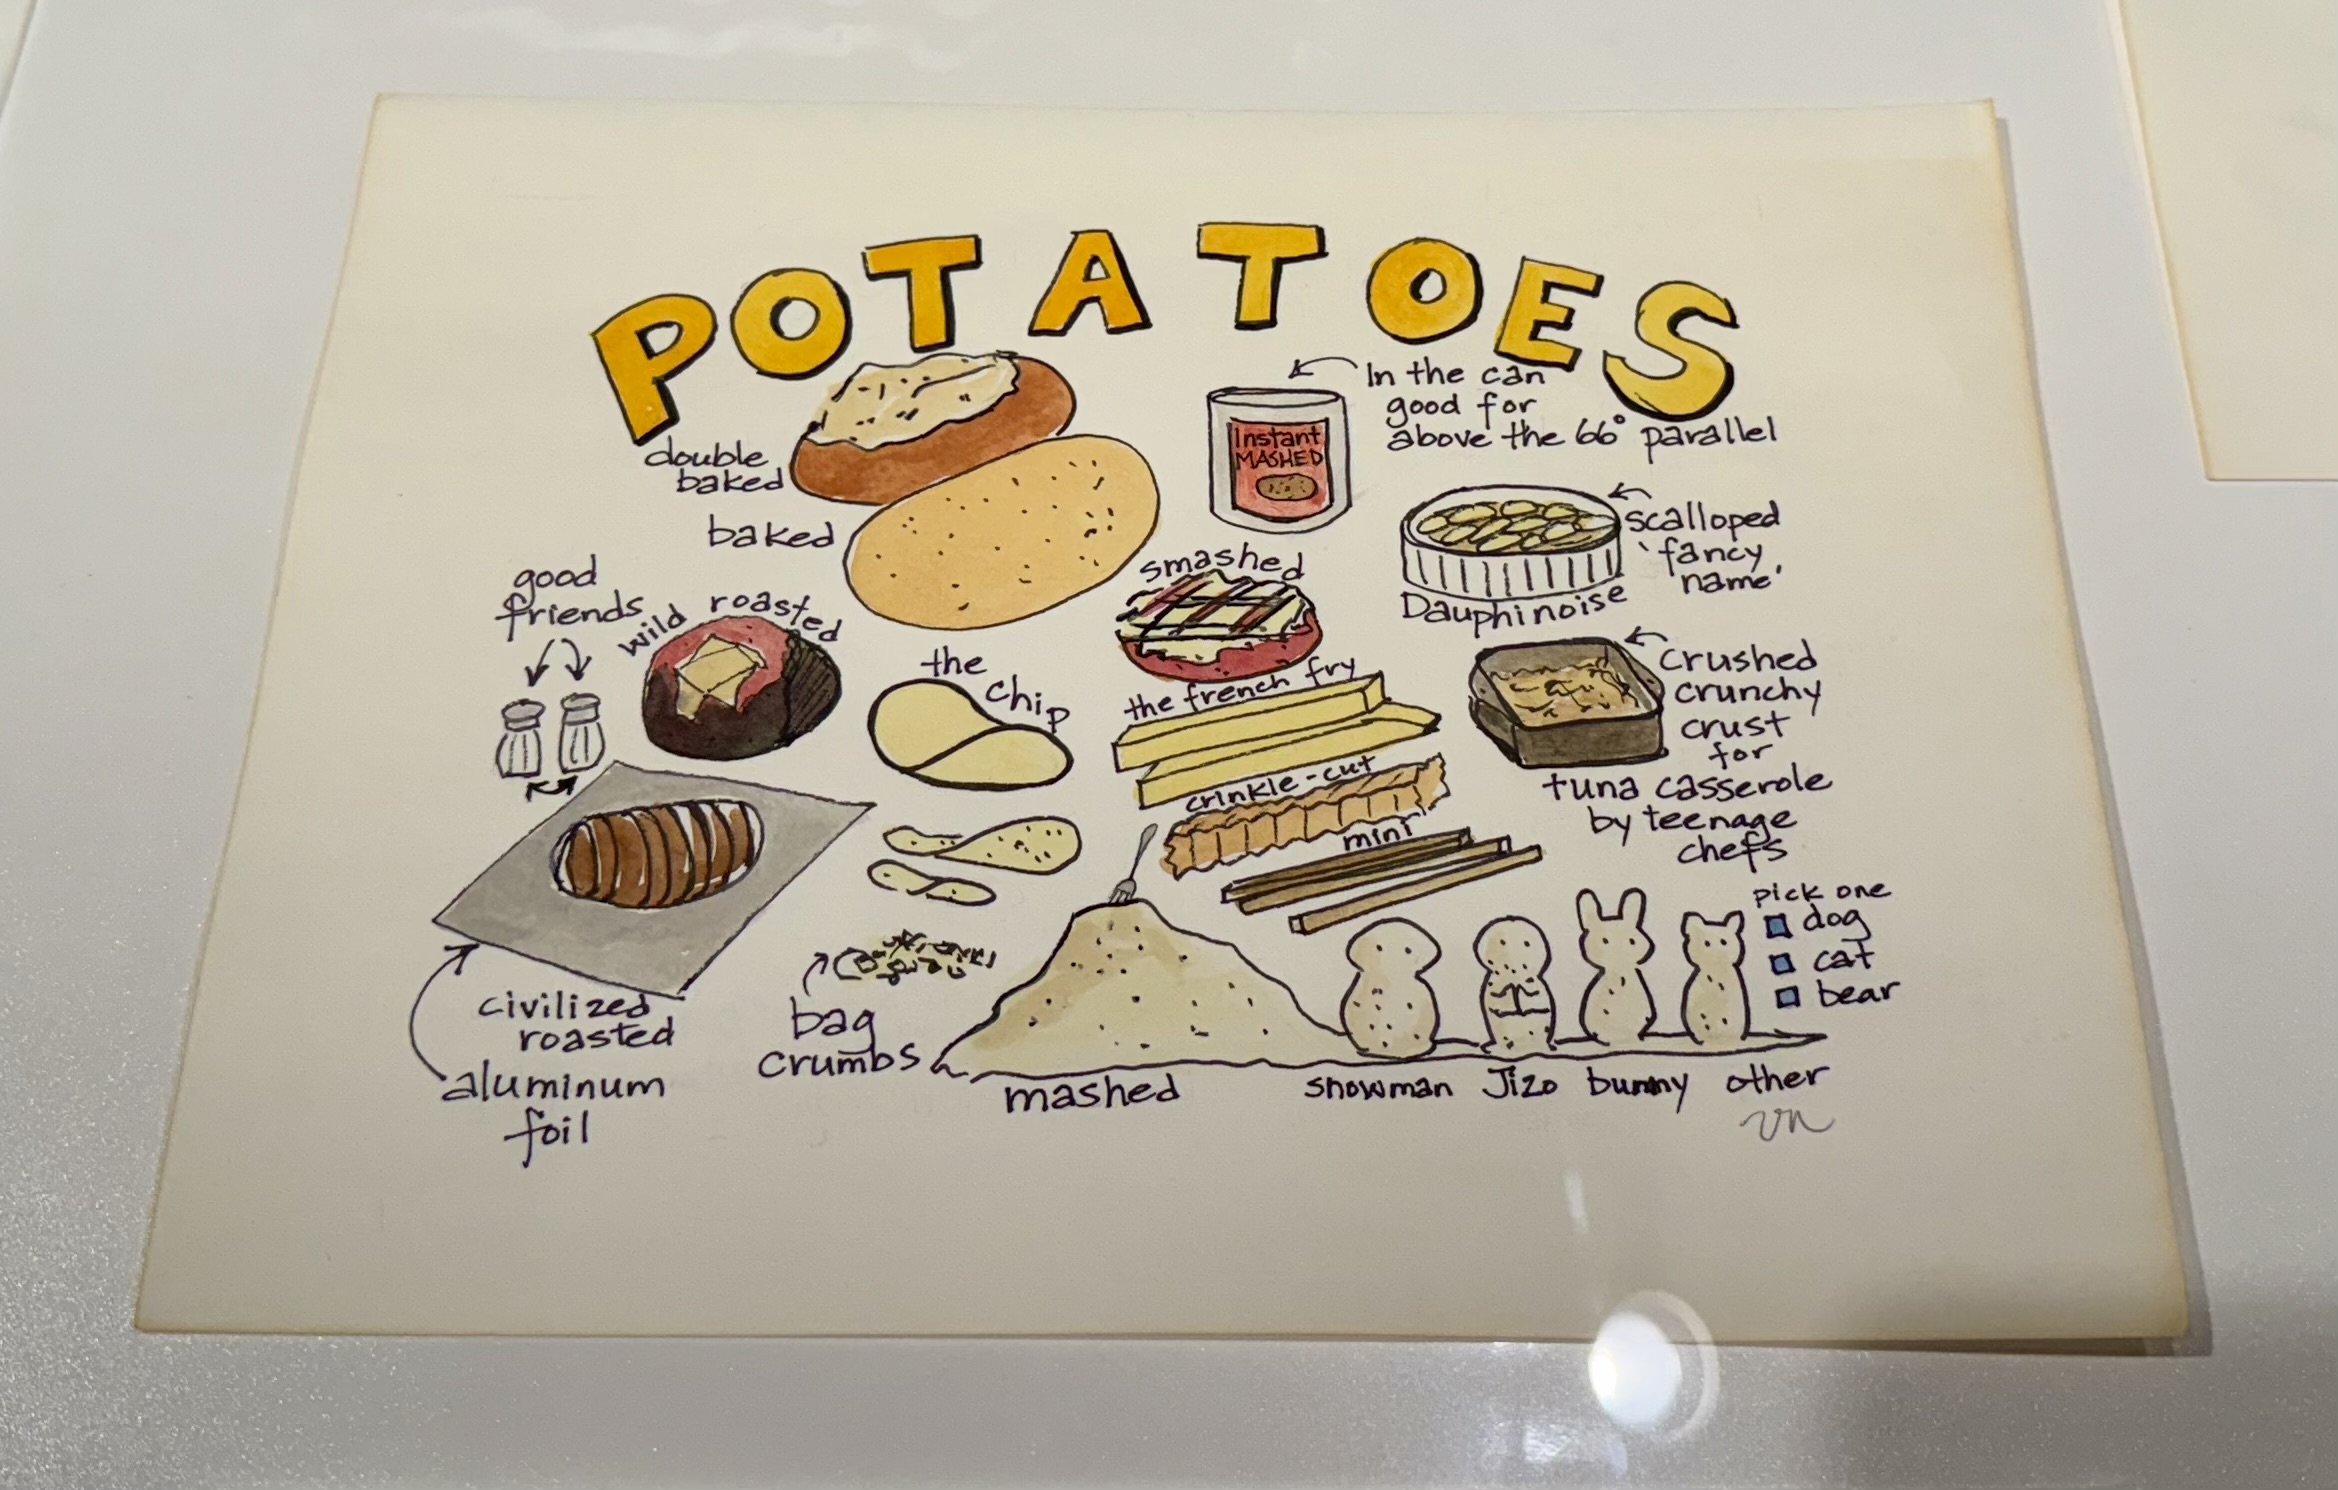 POTATOES
double
baked
baked
In the can
good for
above the 66° parallel
Instant
MASHED
scalloped
'fancy
name'
Dauphinoise
smashed
good
friends
wild roasted
the
chip
the french fry
crinkle-cut
mini
crushed
crunchy
crust
for
tuna casserole
by teenage
chefs
civilized
roasted
aluminum
foil
bag
crumbs
mashed
snowman
Jizo
bunny
other
pick one
dog
cat
bear